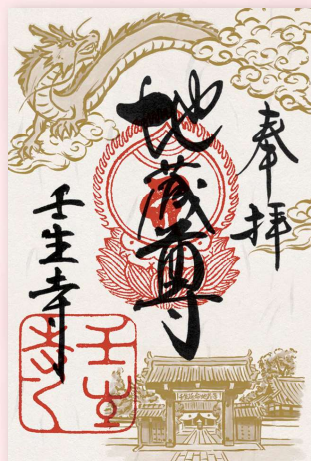 奉拝
地蔵尊
壬生寺